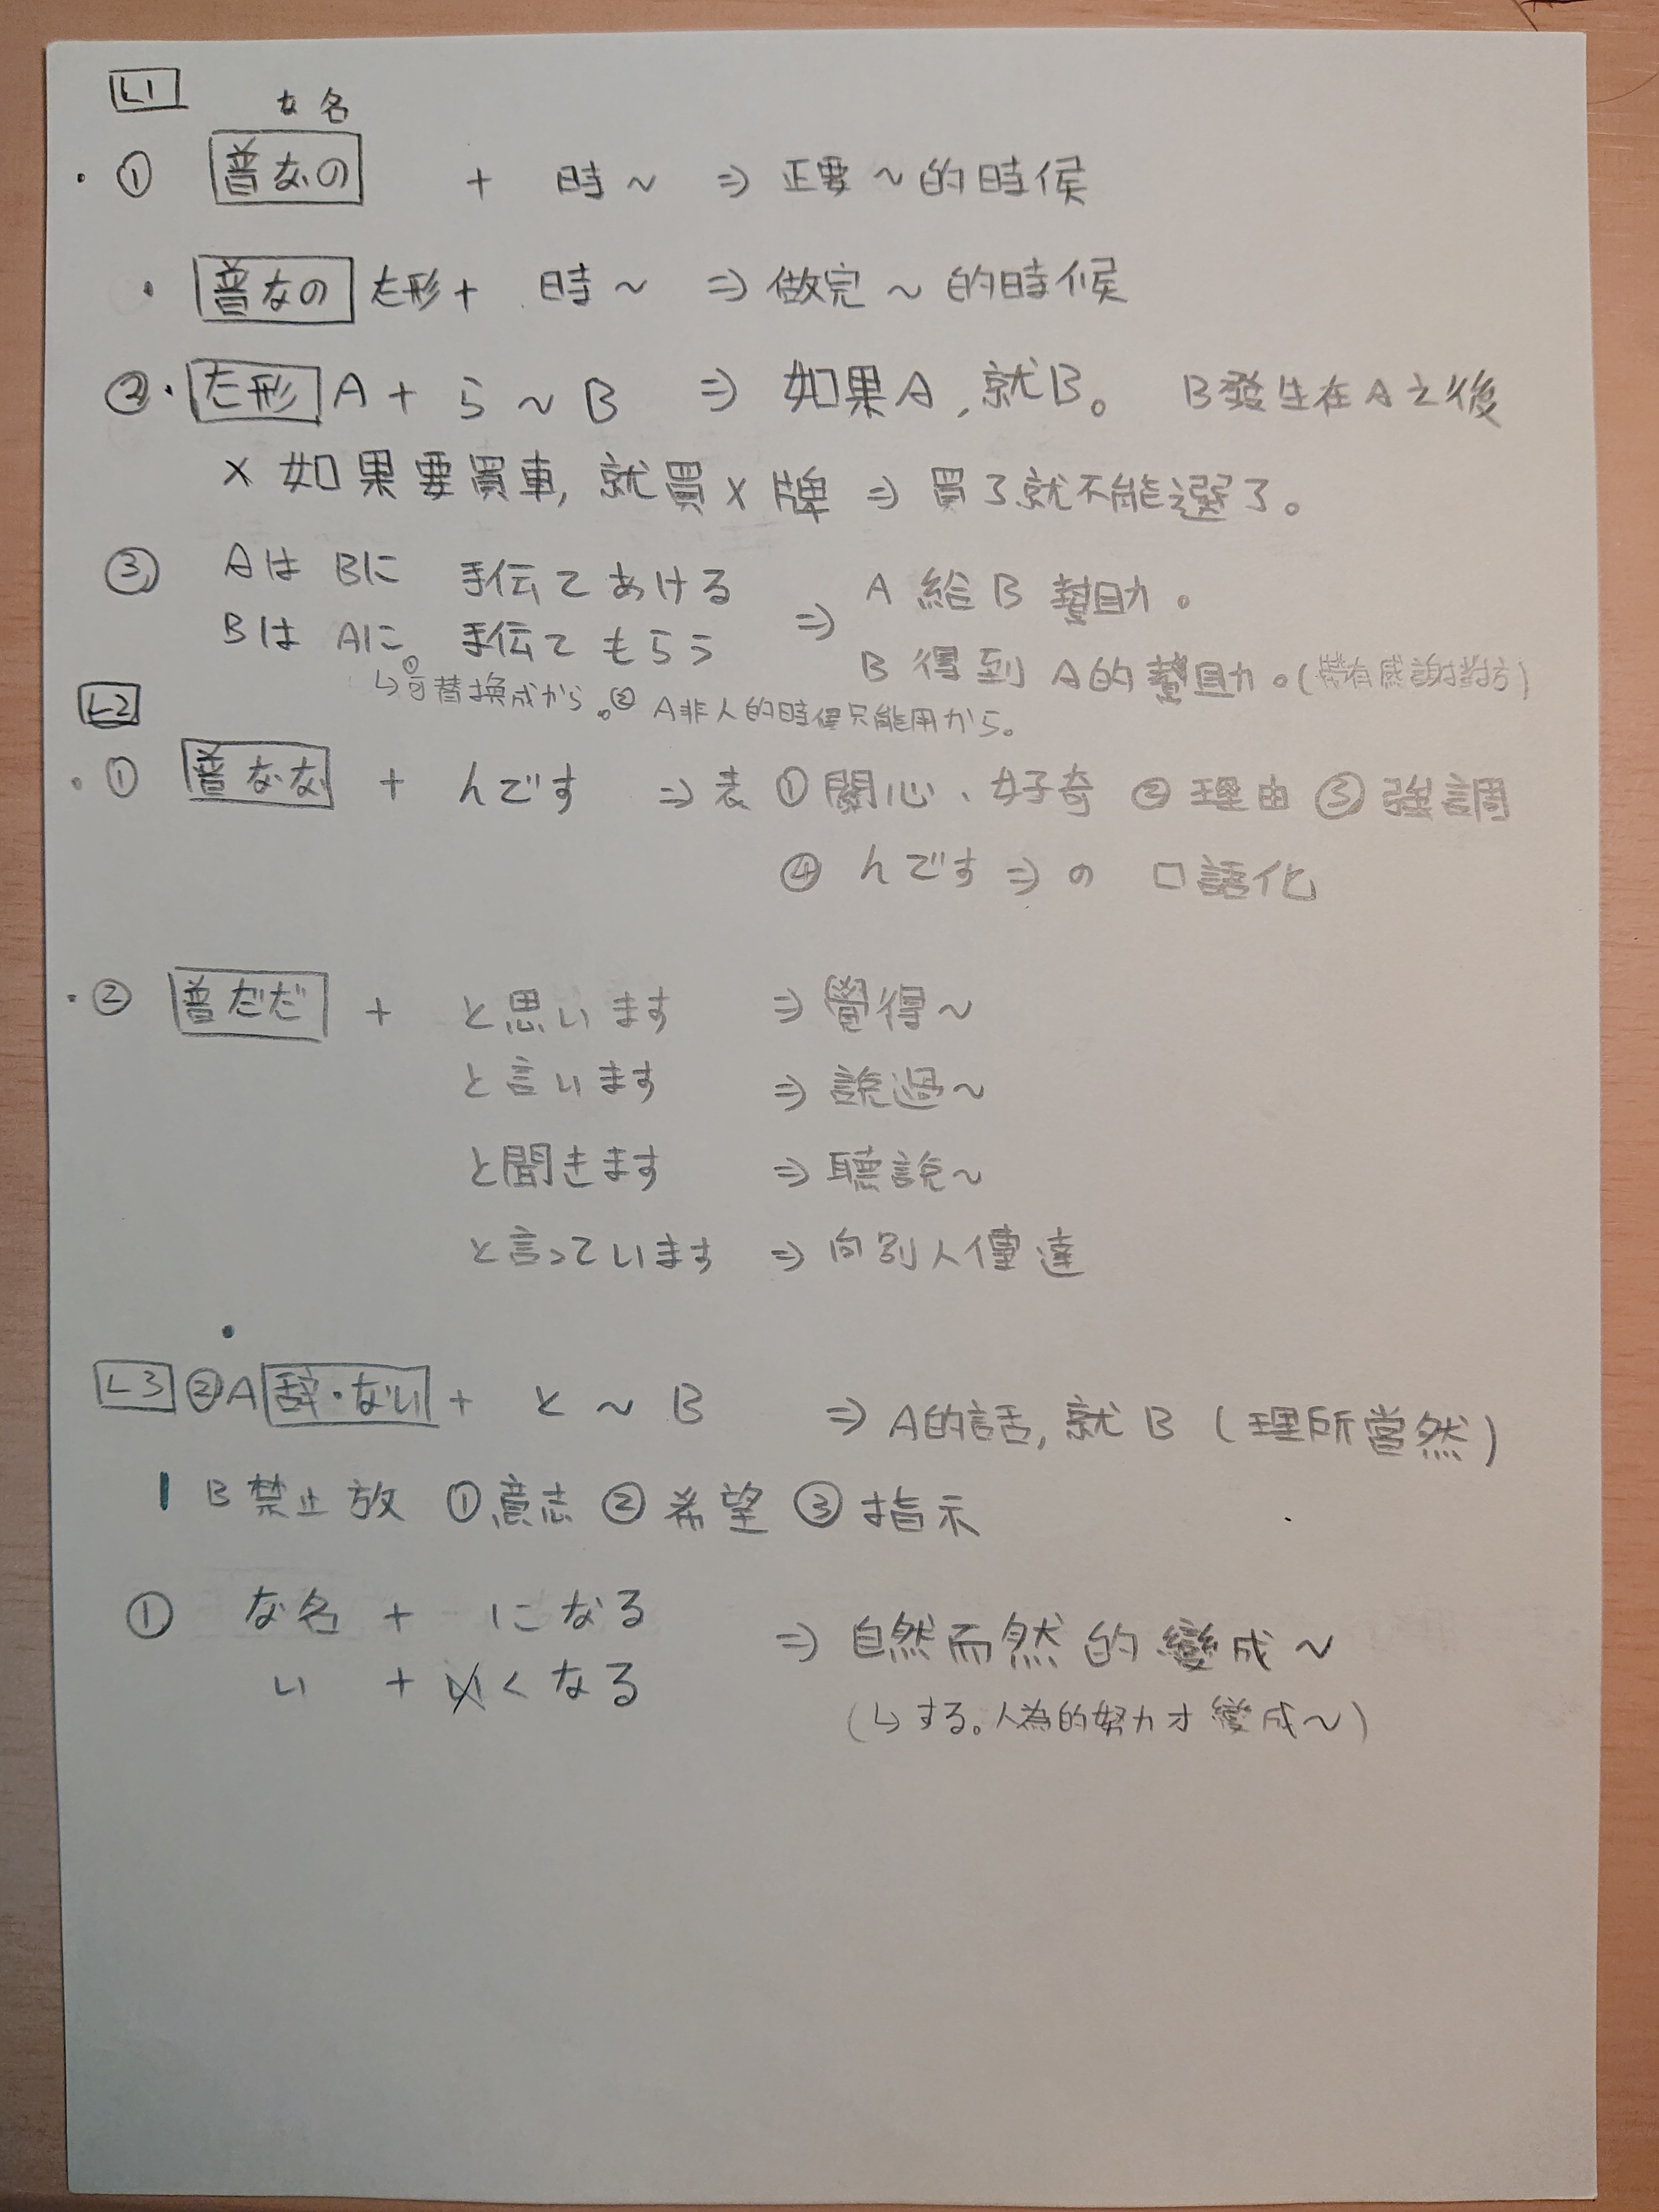 L1
な 名
・① 普なの + 時～ ⇒ 正要～的時候
・ 普なの た形 + 時～ ⇒ 做完～的時候
②・た形 A + ら～B ⇒ 如果A,就B。 B發生在A之後
× 如果要買車,就買×牌 ⇒ 買了就不能選了。
③ Aは Bに 手伝てあける ⇒ A 給 B 幫助。
Bは Aに 手伝てもらう B 得到 A的幫助。(帶有感謝對方)
①↳可替換成から。② A非人的時候只能用から。
L2
・① 普なな + んです ⇒ 表 ①關心、好奇 ②理由 ③強調
④ んです ⇒ の 口語化
・② 普だだ + と思います ⇒ 覺得～
と言います ⇒ 說過～
と聞きます ⇒ 聽說～
と言っています ⇒ 向別人傳達
L3 ②A 辞・ない + と～B ⇒ A的話,就B (理所當然)
B禁止放 ①意志 ②希望 ③指示
① な名 + になる ⇒ 自然而然的變成～
い + いくなる
(↳する。人為的努力才變成～)